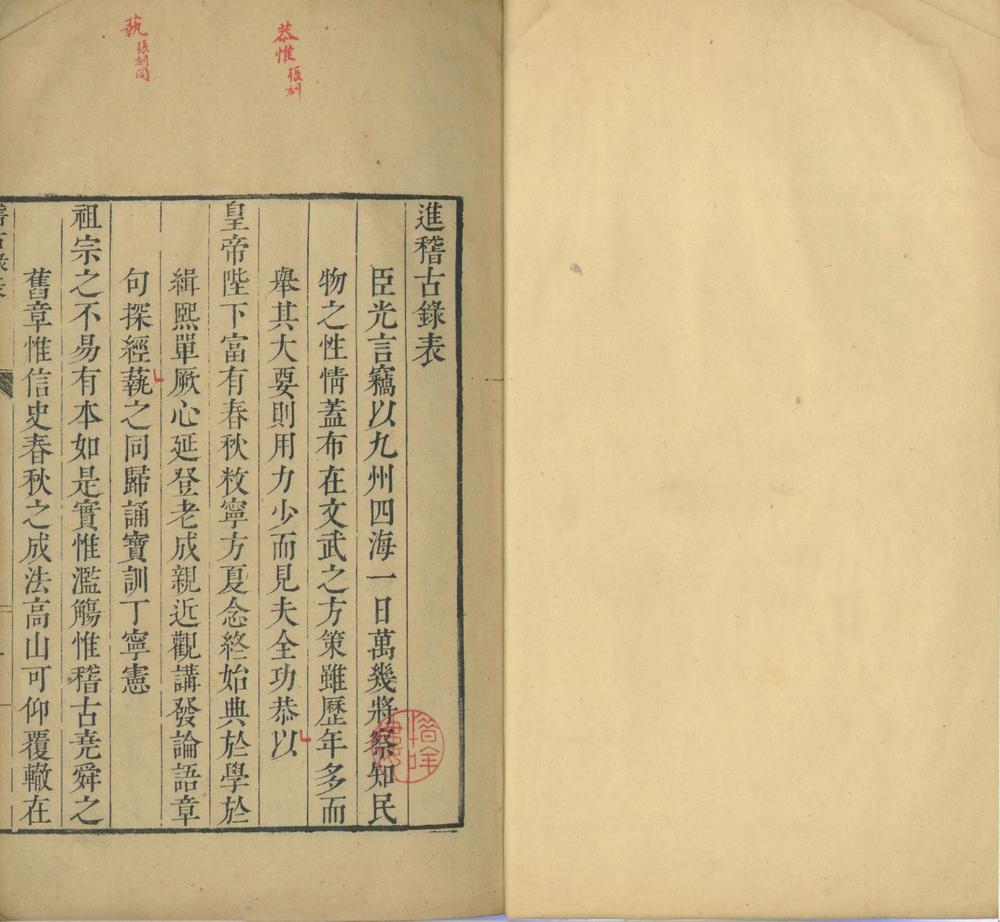 恭惟張刻
蓺張刻同
進稽古錄表
臣光言竊以九州四海一日萬幾將察知民
物之性情蓋布在文武之方策雖歷年多而
舉其大要則用力少而見夫全功恭以
皇帝陛下富有春秋敉寧方夏念終始典於學於
緝熙單厥心延登老成親近觀講發論語章
句探經蓺之同歸誦寶訓丁寧憲
祖宗之不易有本如是實惟濫觴惟稽古堯舜之
舊章惟信史春秋之成法高山可仰覆轍在